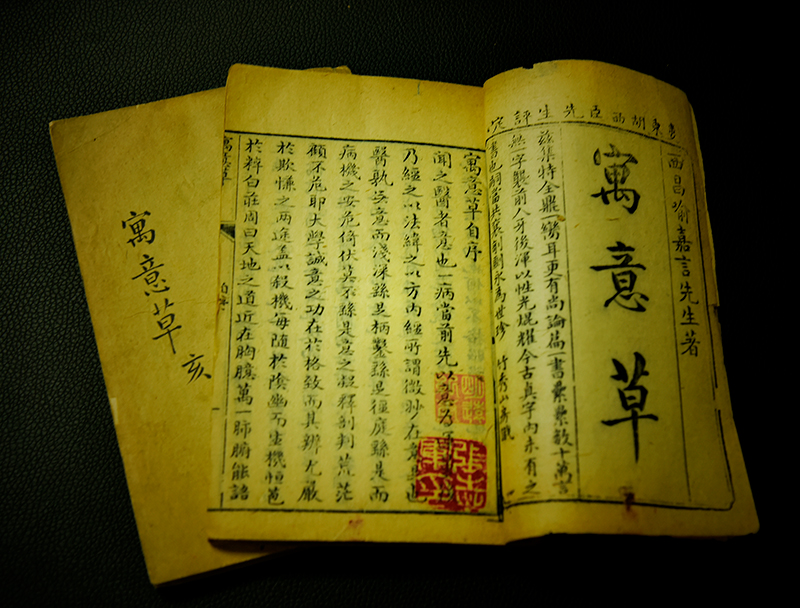 胡卣臣先生評定
西昌喻嘉言先生著
寓意草
茲集特全鼎一臠耳更有尚論篇一書彙纂數十萬言
無一字襲前人牙後渾以性光焜耀今古真宇內未有之
書也嗣當共永為世珍
寓意草自序
聞之醫者意也一病當前先以意為
乃經之以法緯之以方內經所謂微眇在意是也
醫孰無意而淺深繇是枘鑿繇是徑庭繇是而
病機之安危倚伏莫不繇是意之凝釋剖判荒茫
顧不危耶大學誠意之功在於格致而其辨尤嚴
於欺慊之兩途蓋以殺機每隨於陰幽而生機恒苞
於粹白莊周曰天地之道近在胸臆萬一肺腑能語
寓意草
寓意草 亥